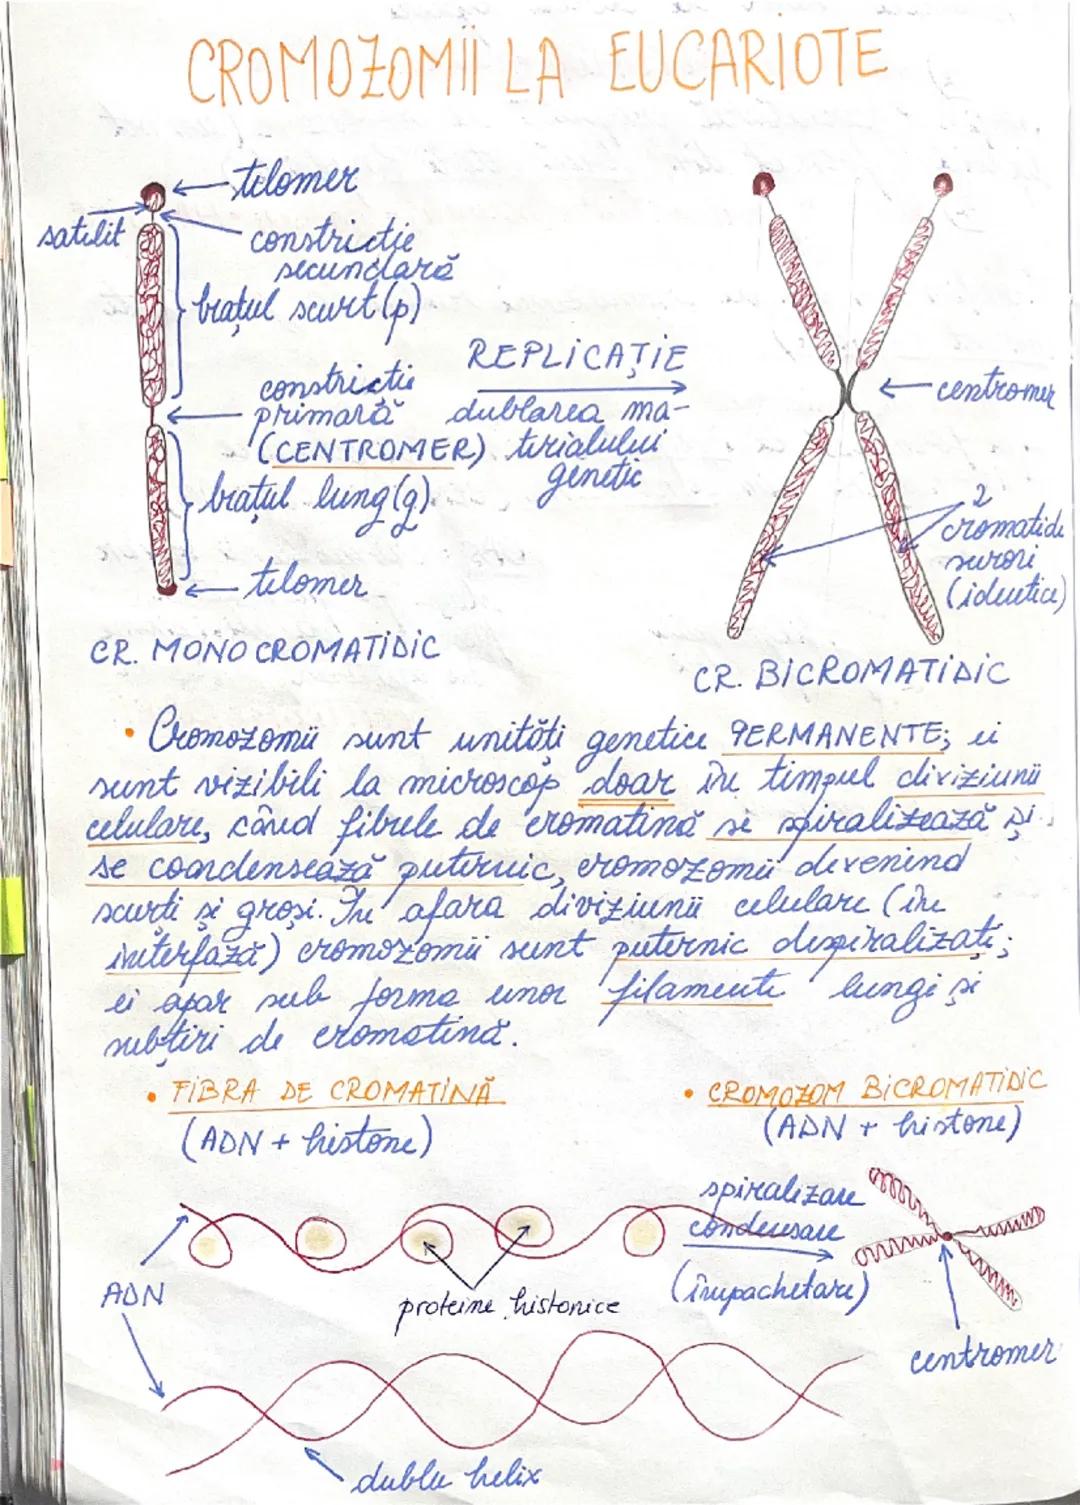 CROMOZOMII LA EUCARIOTE
telomer
satelit
constricție
secundară
brațul scurt (p)
constricție
primară
(CENTROMER)
brațul lung (g)
telomer
CR. MONOCROMATIDIC
REPLICAȚIE
dublarea ma-
terialului
genetic
centromer
2
cromatide
surori
(identice)
CR. BICROMATIDIC
• Cromozomii sunt unități genetice PERMANENTE; ei
sunt vizibili la microscop doar în timpul diviziunii
celulare, când fibrele de cromatină se spiralizează și
se condensează puternic, cromozomii devenind
scurți și groși. În afara diviziunii celulare (în
interfază) cromozomii sunt puternic despiralizați;
ei apar sub forma unor filamente lungi și
subțiri de cromatină.
• FIBRA DE CROMATINĂ
(ADN + histone)
• CROMOZOM BICROMATIDIC
(ADN + histone)
spiralizare
condensare
(împachetare)
ADN
proteine histonice
centromer
dublu helix